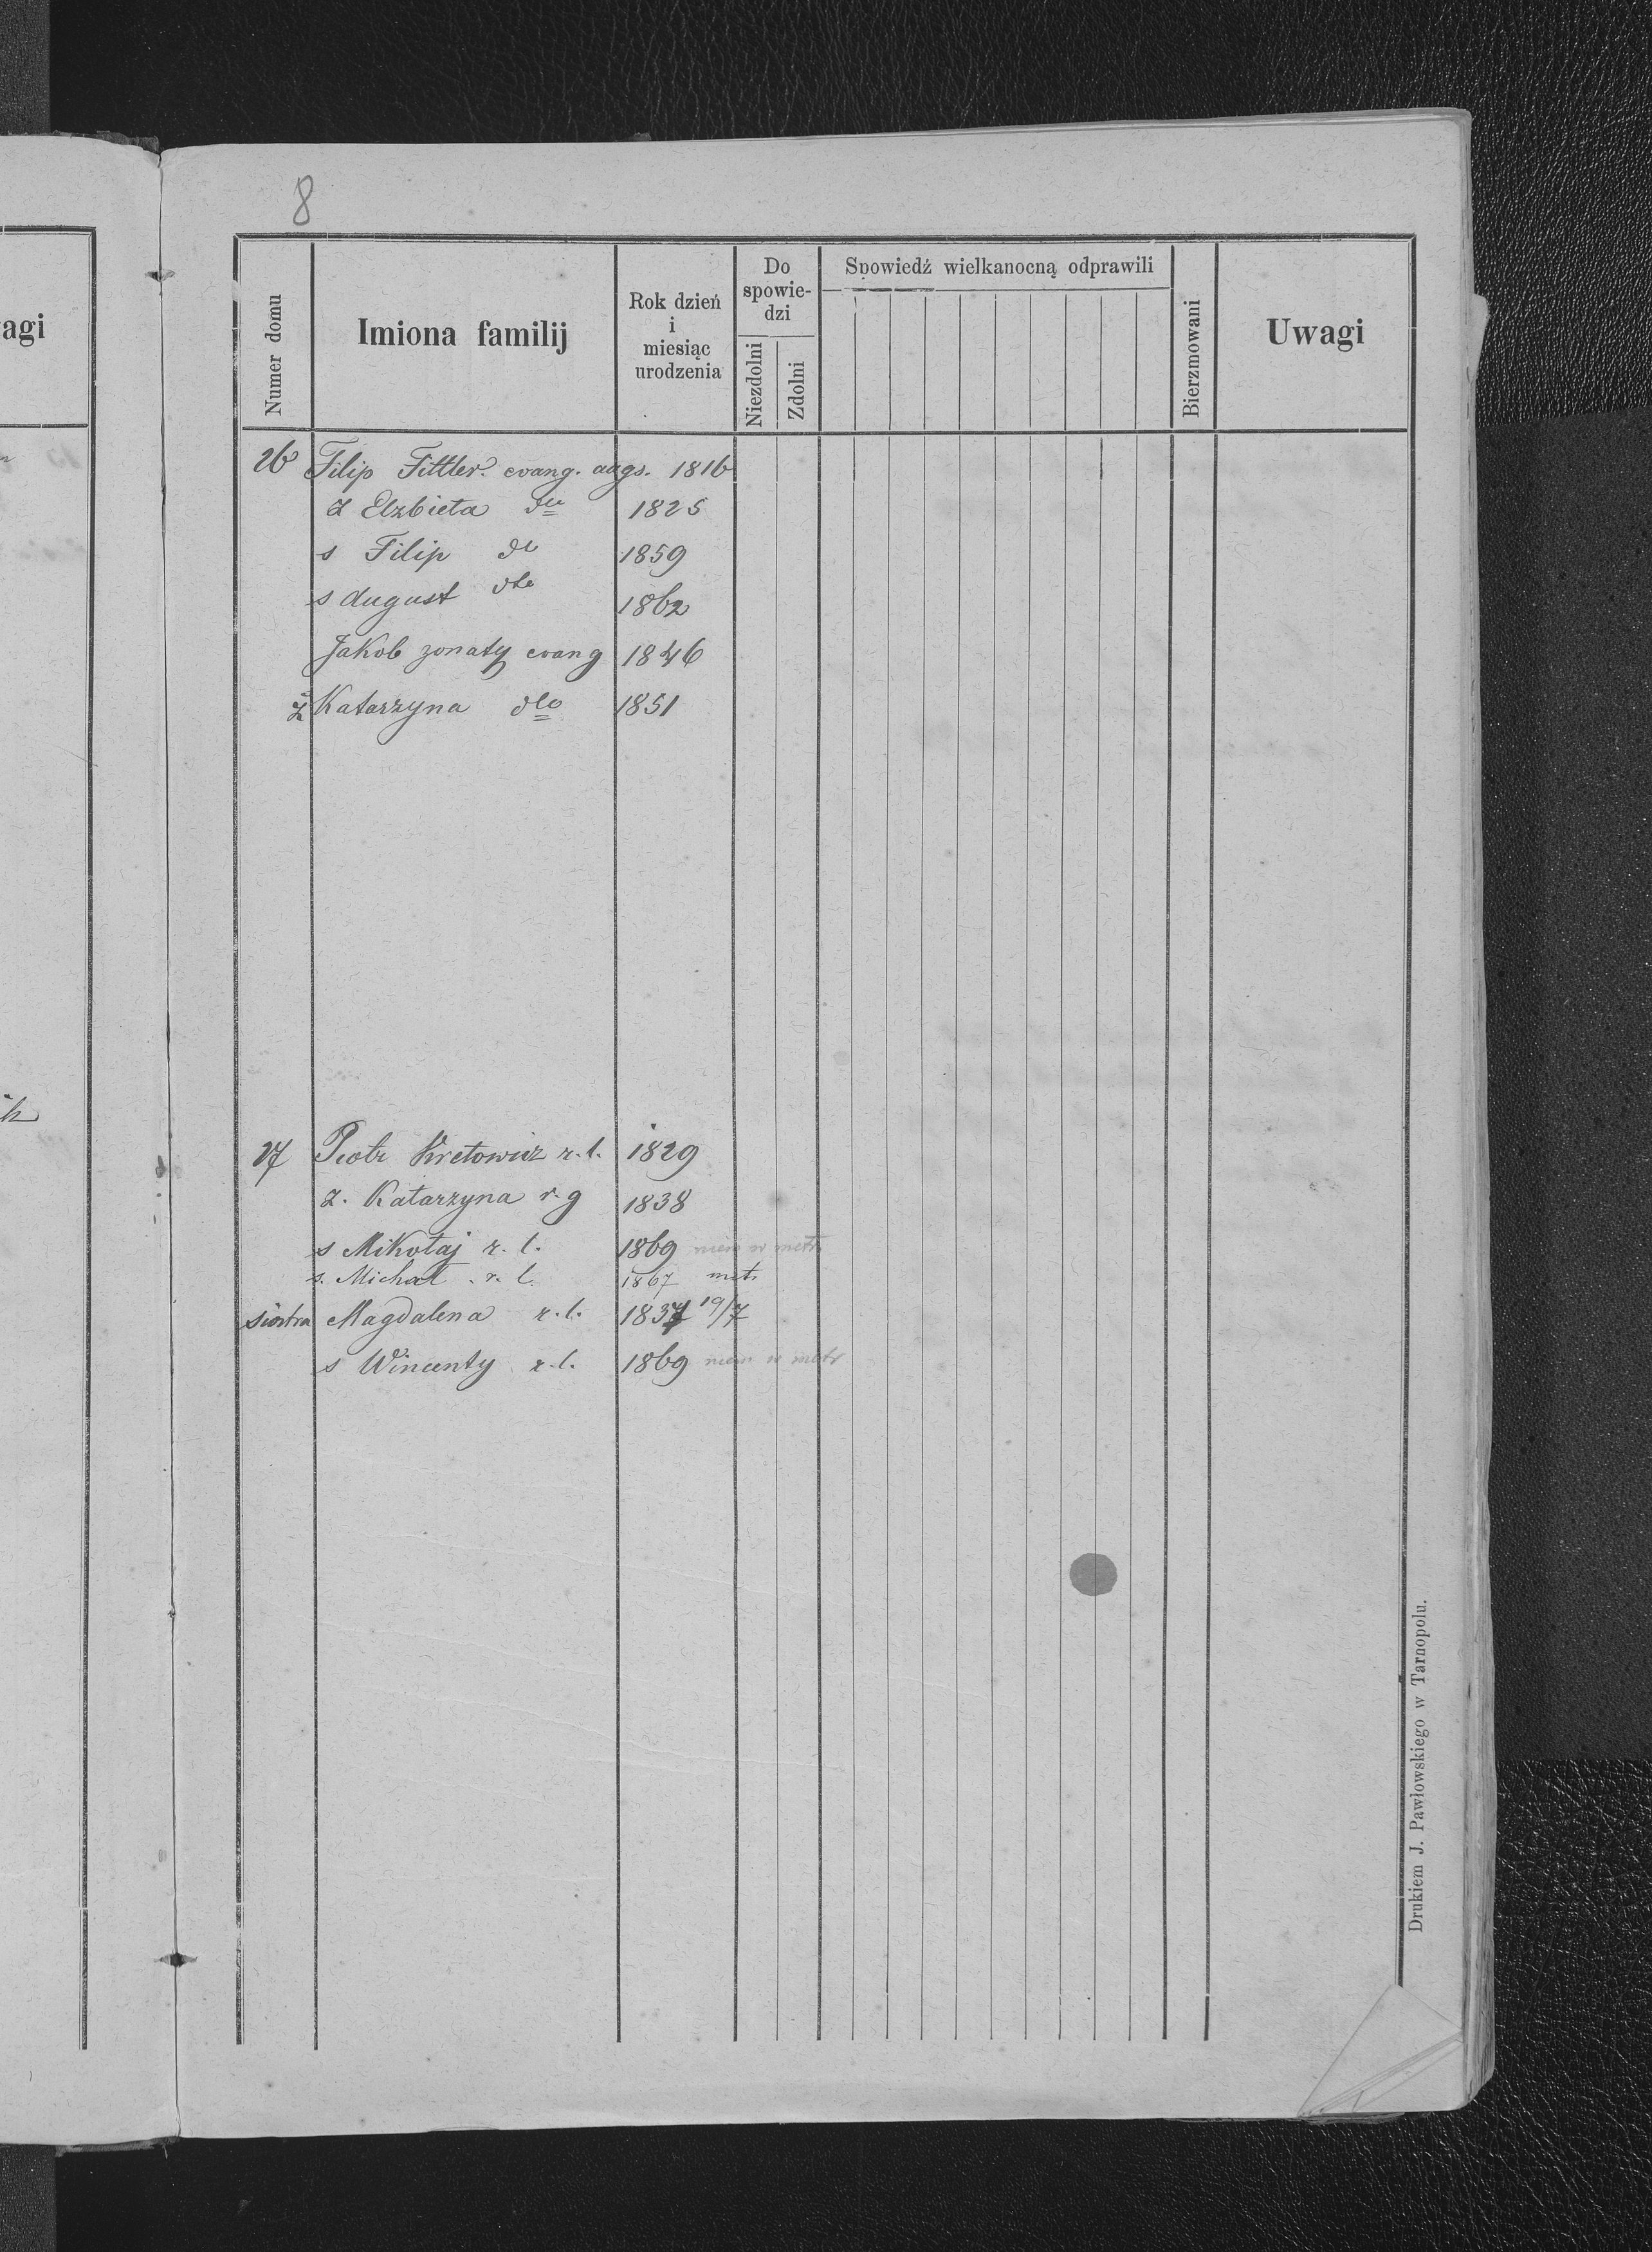 8
agi
Numer domu
Imiona familij
Rok dzień
i
miesiąc
urodzenia
Do
spowie-
dzi
Niezdolni
Zdolni
Spowiedź wielkanocną odprawili
Bierzmowani
Uwagi
26 Filip Fittler. evang. augs. 1816
z Elzbieta dto 1825
s Filip dto 1859
s August dto 1862
Jakob zonaty evang 1846
ż Katarzyna dto 1851
27 Piotr Kretowicz r. l. 1829
z. Katarzyna r. g 1838
s Mikołaj r. l. 1869 niem w metr
s. Michał r. l. 1867 metr
siostra Magdalena r. l. 1837 19/7
s Wincenty r. l. 1869 niem w metr
Drukiem J. Pawłowskiego w Tarnopolu.